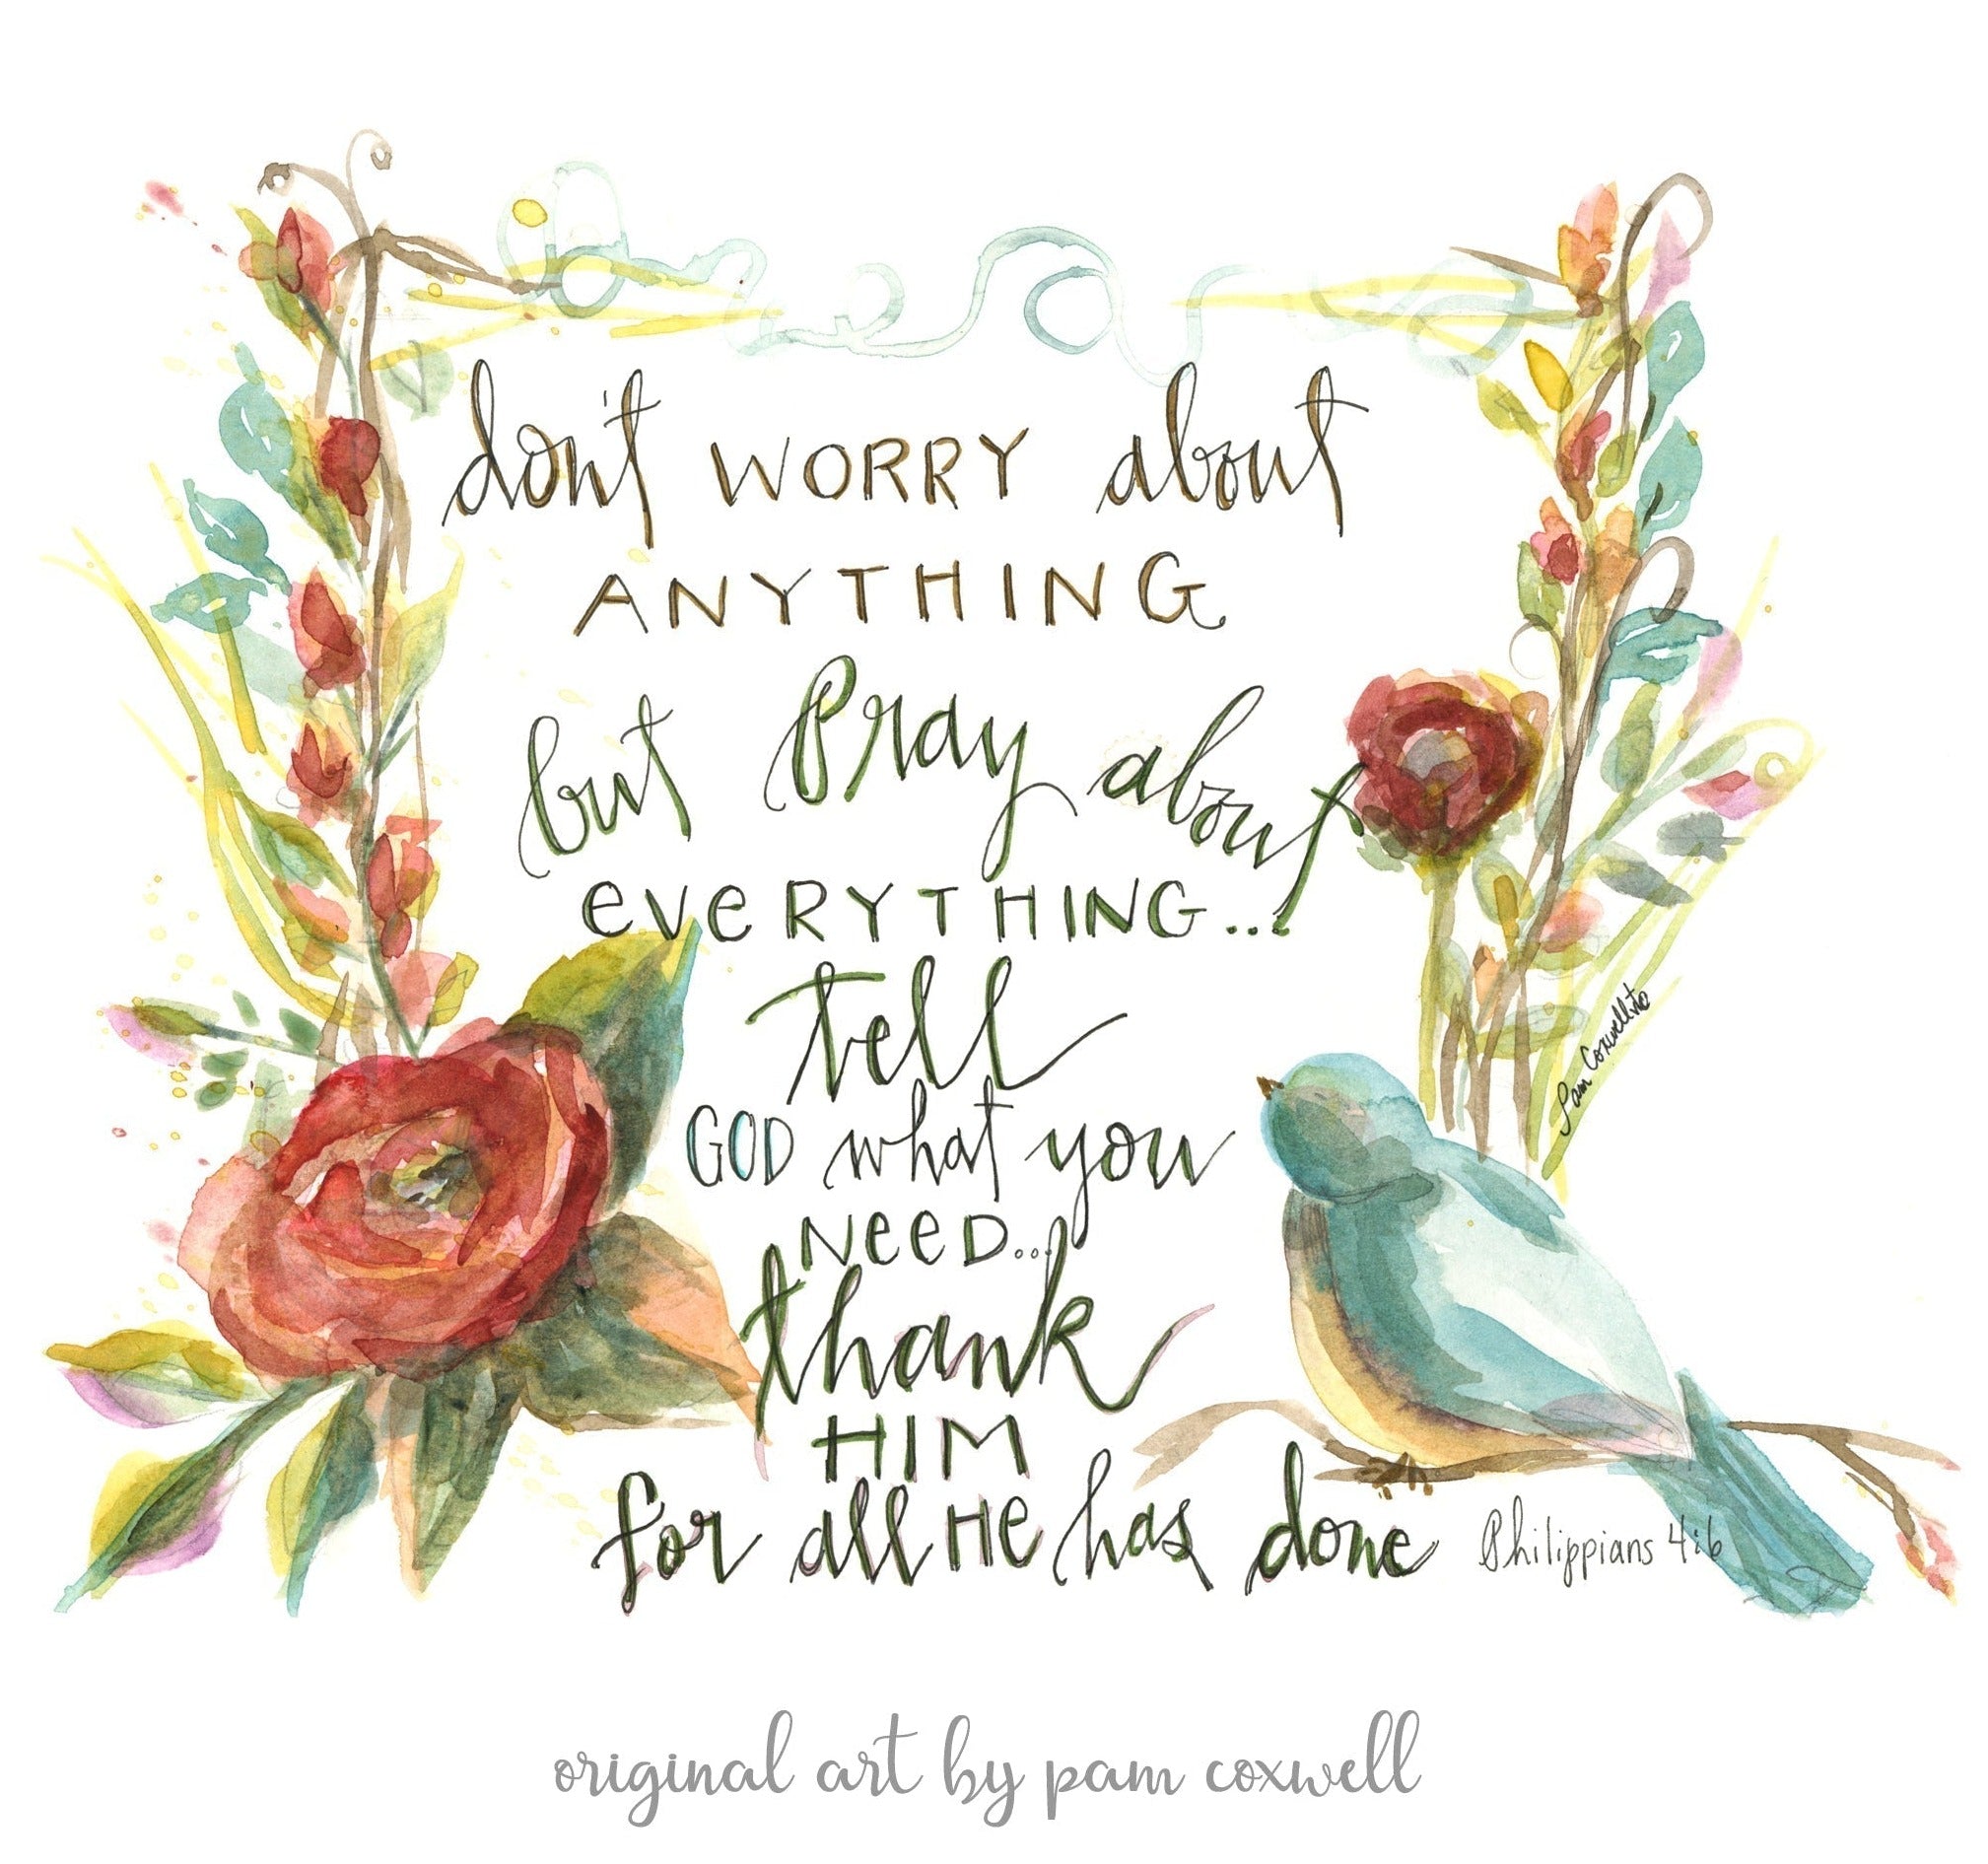 don't WORRY about
ANYTHING
but Pray about
EVERYTHING...
tell
GOD what you
NEED...
thank
HIM
for all HE has done
Philippians 4:6
Pam Coxwell
original art by pam coxwell